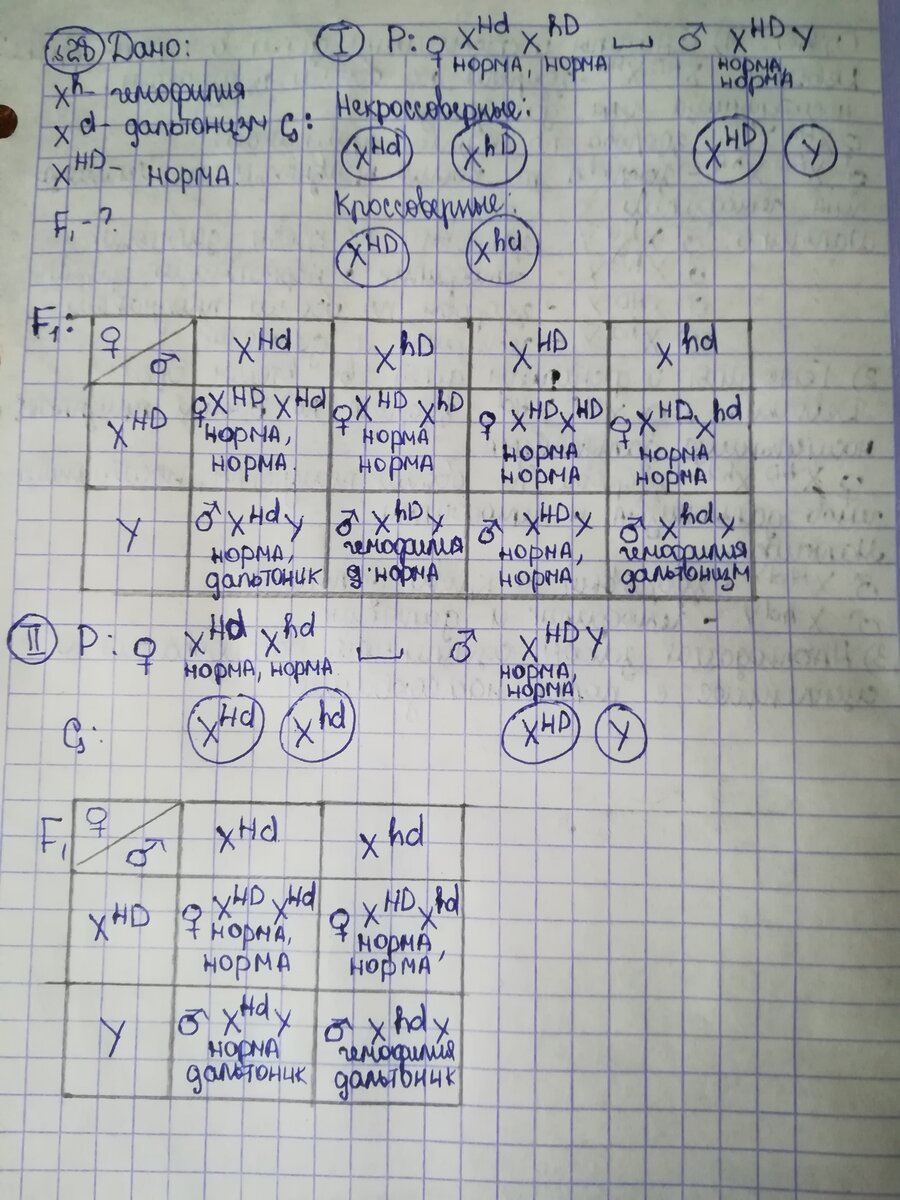 №28 Дано:
I P: ♀ X^Hd X^hD ♂ X^HD Y
норма, норма
норма,
норма
X^h - гемофилия
X^d - дальтонизм
X^HD - норма.
F₁ - ?
G:
Некроссоверные:
X^Hd X^hD X^HD Y
Кроссоверные:
X^HD X^hd
F₁:
♀ ♂ X^Hd X^hD X^HD X^hd
X^HD ♀X^HD X^Hd ♀X^HD X^hD ♀ X^HD X^HD ♀X^HD X^hd
норма, норма норма норма
норма. норма норма норма
Y ♂ X^Hd Y ♂ X^hD Y ♂ X^HD Y ♂ X^hd Y
норма, гемофилия норма, гемофилия
дальтоник д. норма норма дальтонизм
II P: ♀ X^Hd X^hd ♂ X^HD Y
норма, норма норма,
норма
G: X^Hd X^hd X^HD Y
F₁
♀ ♂ X^Hd X^hd
X^HD ♀ X^HD X^Hd ♀ X^HD X^hd
норма, норма,
норма норма
Y ♂ X^Hd Y ♂ X^hd Y
норма гемофилия
дальтоник дальтоник